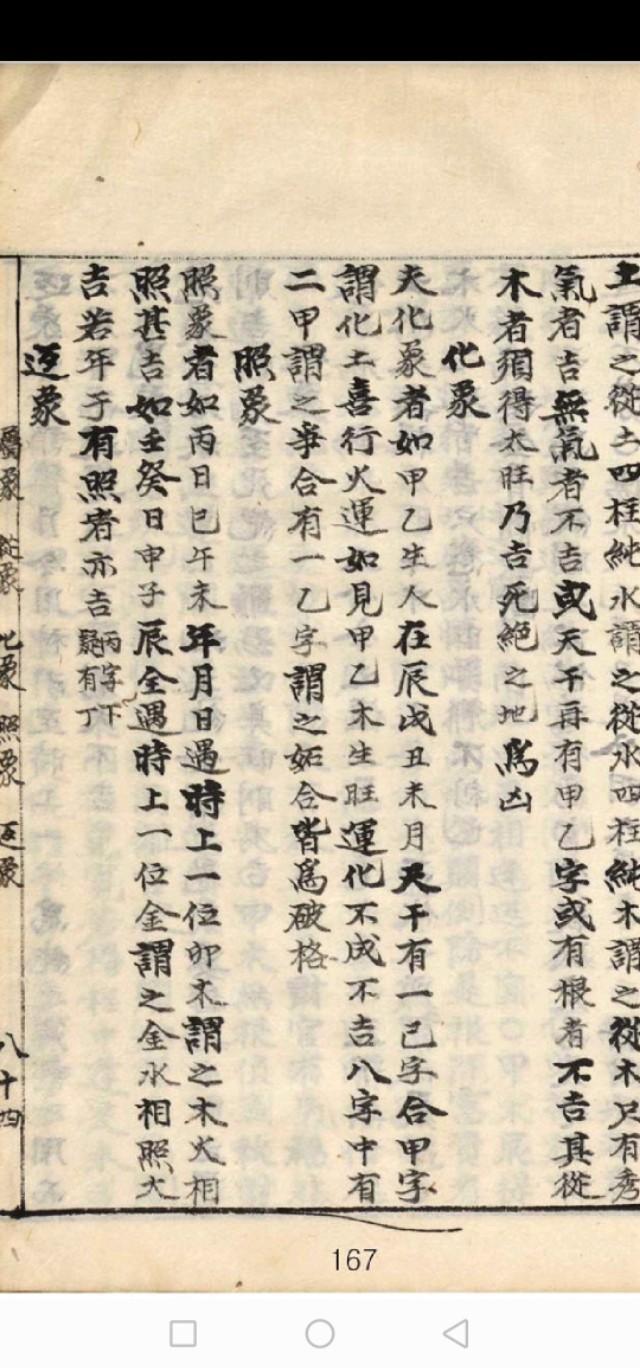 土謂之從土四柱純水謂之從水四柱純木謂之從木只有秀
氣者吉無氣者不吉或天干再有甲乙字或有根者不吉其從
木者須得太旺乃吉死絕之地爲凶
化象
夫化象者如甲乙生人在辰戌丑未月天干有一己字合甲字
謂化土喜行火運如見甲乙木生旺運化不成不吉八字中有
二甲謂之爭合有一乙字謂之妬合皆爲破格
照象
照象者如丙日巳午未年月日遇時上一位卯木謂之木火相
照甚吉如壬癸日申子辰全遇時上一位金謂之金水相照大
吉若年干有照者亦吉
丙字下
疑有丁
返象
屬象 從象 化象 照象 返象 八十四
167